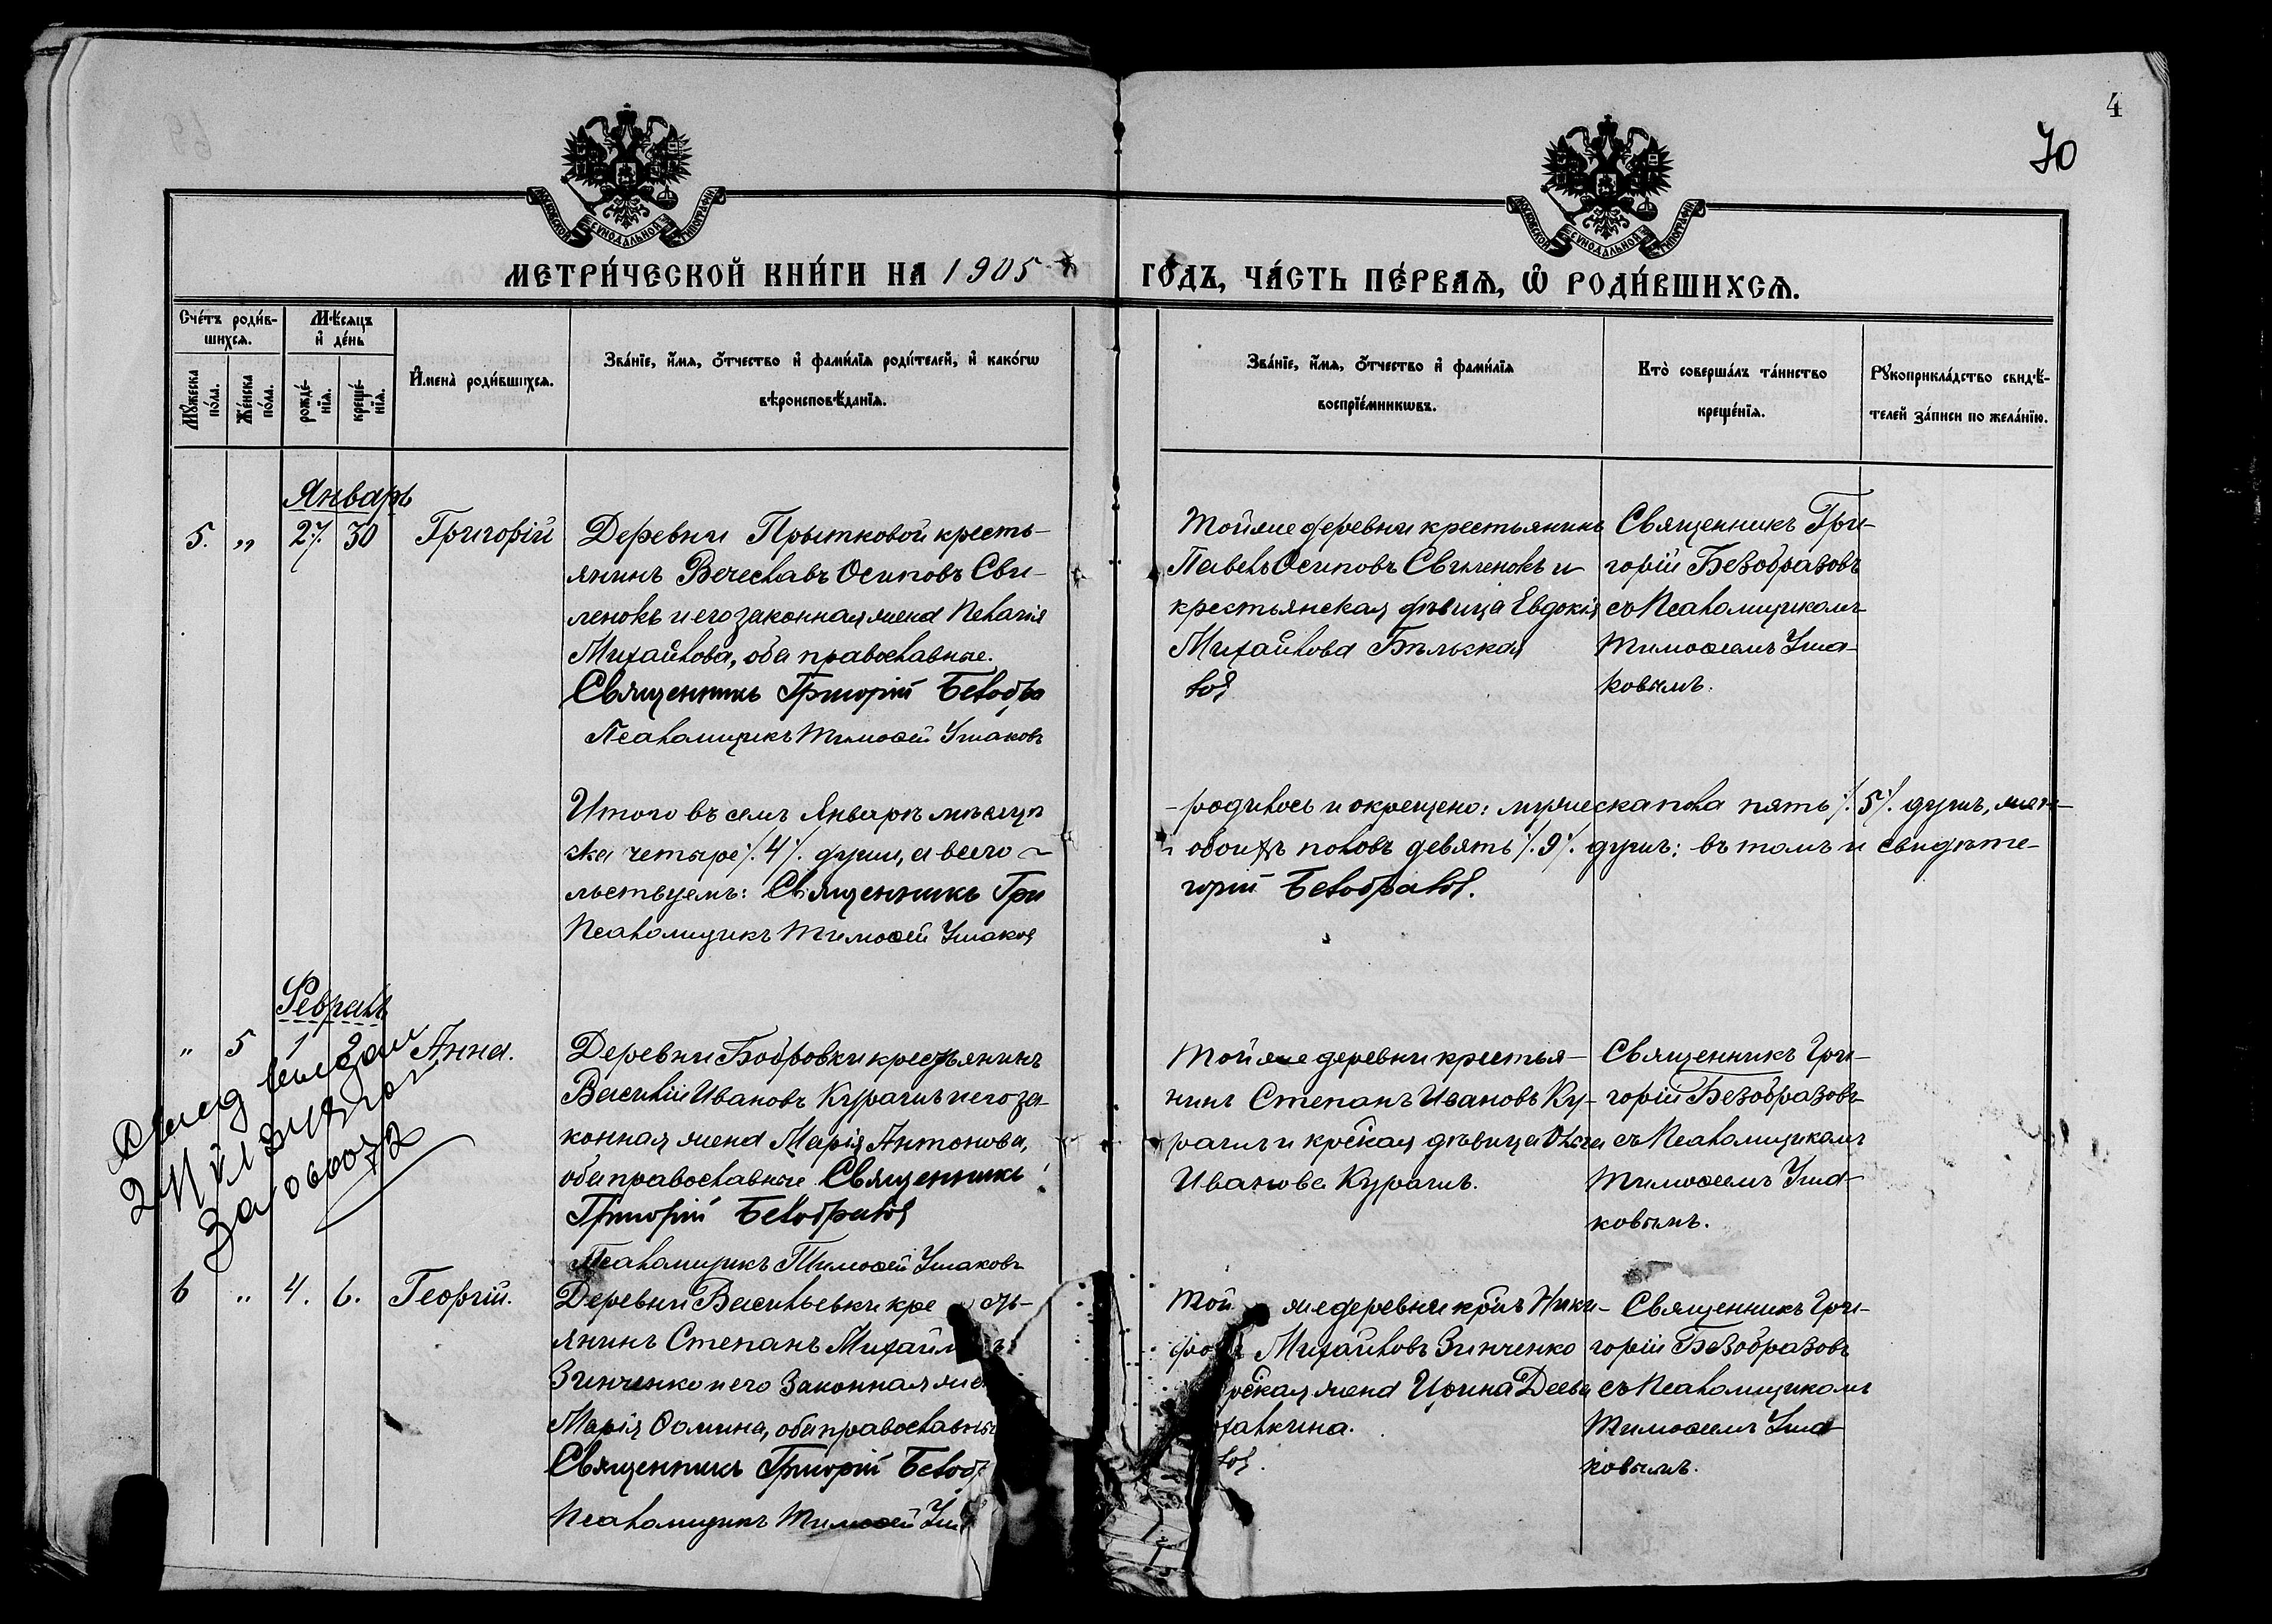 4
70
69
МОСКОВСКОЙ СѴНОДАЛЬНОЙ ТИПОГРАФІИ
МОСКОВСКОЙ СѴНОДАЛЬНОЙ ТИПОГРАФІИ
МЕТРИ́ЧЕСКОЙ КНИ́ГИ НА 1905
ГО́ДЪ, ЧА́СТЬ ПЕ́РВАѦ, Ѽ РОДИ́ВШИХСѦ.
Сче́тъ роди́в-
шихсѧ.
Мѣ́сѧцъ
и҆ де́нь
Мꙋ́жеска
по́ла.
Же́нска
по́ла.
рожде́-
нїѧ.
креще́-
нїѧ.
И҆мена̀ роди́вшихсѧ.
Зва́нїе, и҆́мѧ, ѻ҆́тчество и҆ фами́лїѧ роди́телей, и҆ како́гѡ
вѣроисповѣ́данїѧ.
Зва́нїе, и҆́мѧ, ѻ҆́тчество и҆ фами́лїѧ
воспрїе́мникѡвъ.
Кто̀ соверша́лъ та́инство
креще́нїѧ.
Рꙋкоприкла́дство свидѣ́-
телей за́писи по жела́нїю.
Январь
5. „ 27. 30 Григорій
Деревни Прытковой кресть-
янинъ Вячеславъ Осиповъ Сви-
ленокъ и его законная жена Пелагія
Михайлова, оба православные.
Священникъ Григорій Безобра
Псаломщикъ Тимоѳей Ушаковъ
Тойже деревни крестьянинъ
Павелъ Осиповъ Свиленокъ и
крестьянская дѣвица Евдокія
Михайлова Бѣльская
зовъ
Священникъ Гри-
горій Безобразовъ
съ Псаломщикомъ
Тимоѳеемъ Уша-
ковымъ.
Итого въ семъ Январѣ мѣсяцѣ
- родилось и окрещено: мужеска пола пять ٪ 5 ٪ душъ, жен-
ска четыре ٪ 4 ٪ души, а всего ~
обоихъ половъ девять ٪ 9 ٪ душъ: въ томъ и свидѣте-
льствуемъ: Священникъ Гри
горій Безобразовъ.
Псаломщикъ Тимоѳей Ушаковъ
Февраль
„ 5 1 2 Анна.
Деревни Бобровки крестьянинъ
Василій Ивановъ Курагинъ и его за-
конная жена Марія Антонова,
оба православные. Священникъ
Григорій Безобразовъ
Псаломщикъ Тимоѳей Ушаковъ
Тойже деревни крестья-
нинъ Степанъ Ивановъ Ку-
рагинъ и крская дѣвица Ольга
Иванова Курагинъ.
Священникъ Гри-
горій Безобразовъ
съ Псаломщикомъ
Тимоѳеемъ Уша-
ковымъ.
за 066072
6 „ 4. 6. Георгій.
Деревни Васильевки кре сть-
янинъ Степанъ Михайл
Зинченко и его законная же
Марія Ѳомина, оба православны
Священникъ Григорій Безоб
Псаломщикъ Тимоѳей Уш
Той же деревни кр-нъ Ники-
Михайловъ Зинченко
жена Ирина
зовъ.
Священникъ Гри-
горій Безобразовъ
съ Псаломщикомъ
Тимоѳеемъ Уша-
ковымъ.